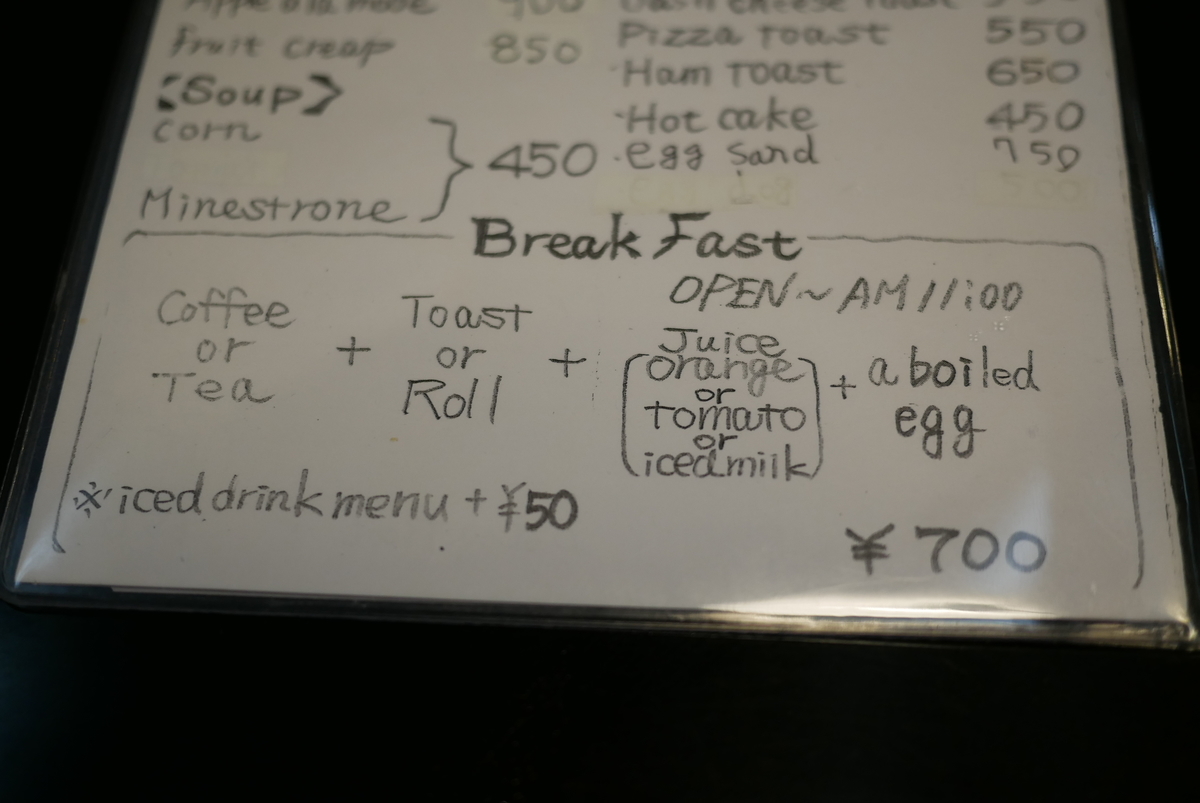 850
Fruit creap
【Soup】
corn
Minestrone
450
Pizza Toast 550
·Ham Toast 650
·Hot cake 450
·egg sand 750
Break Fast
OPEN~AM11:00
Coffee
or
Tea
+
Toast
or
Roll
+
Juice
orange
or
tomato
or
icedmilk
+
a boiled
egg
※iced drink menu +¥50
¥700